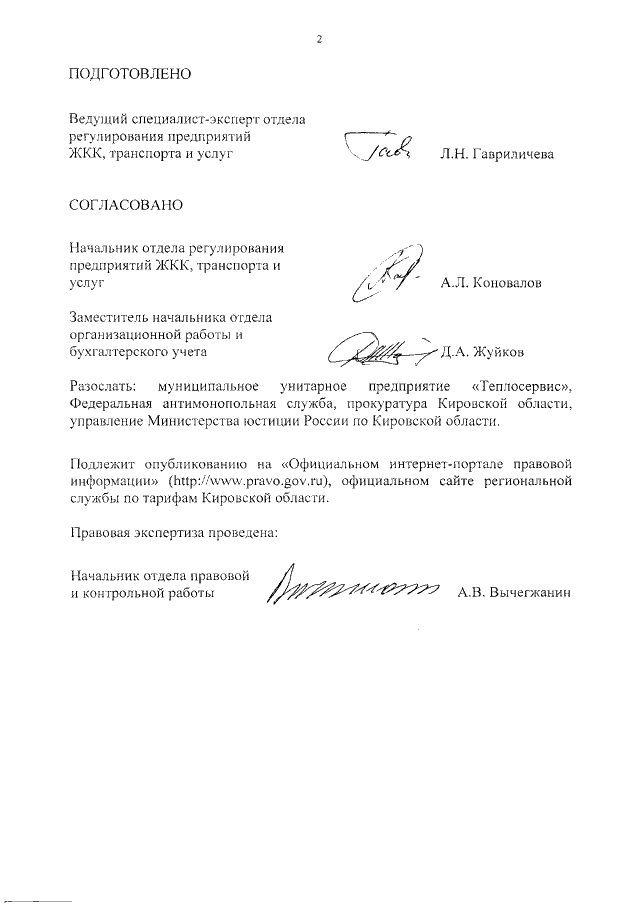 2
ПОДГОТОВЛЕНО
Ведущий специалист-эксперт отдела
регулирования предприятий
ЖКК, транспорта и услуг Л.Н. Гавриличева
СОГЛАСОВАНО
Начальник отдела регулирования
предприятий ЖКК, транспорта и
услуг А.Л. Коновалов
Заместитель начальника отдела
организационной работы и
бухгалтерского учета Д.А. Жуйков
Разослать: муниципальное унитарное предприятие «Теплосервис»,
Федеральная антимонопольная служба, прокуратура Кировской области,
управление Министерства юстиции России по Кировской области.
Подлежит опубликованию на «Официальном интернет-портале правовой
информации» (http://www.pravo.gov.ru), официальном сайте региональной
службы по тарифам Кировской области.
Правовая экспертиза проведена:
Начальник отдела правовой
и контрольной работы А.В. Вычегжанин